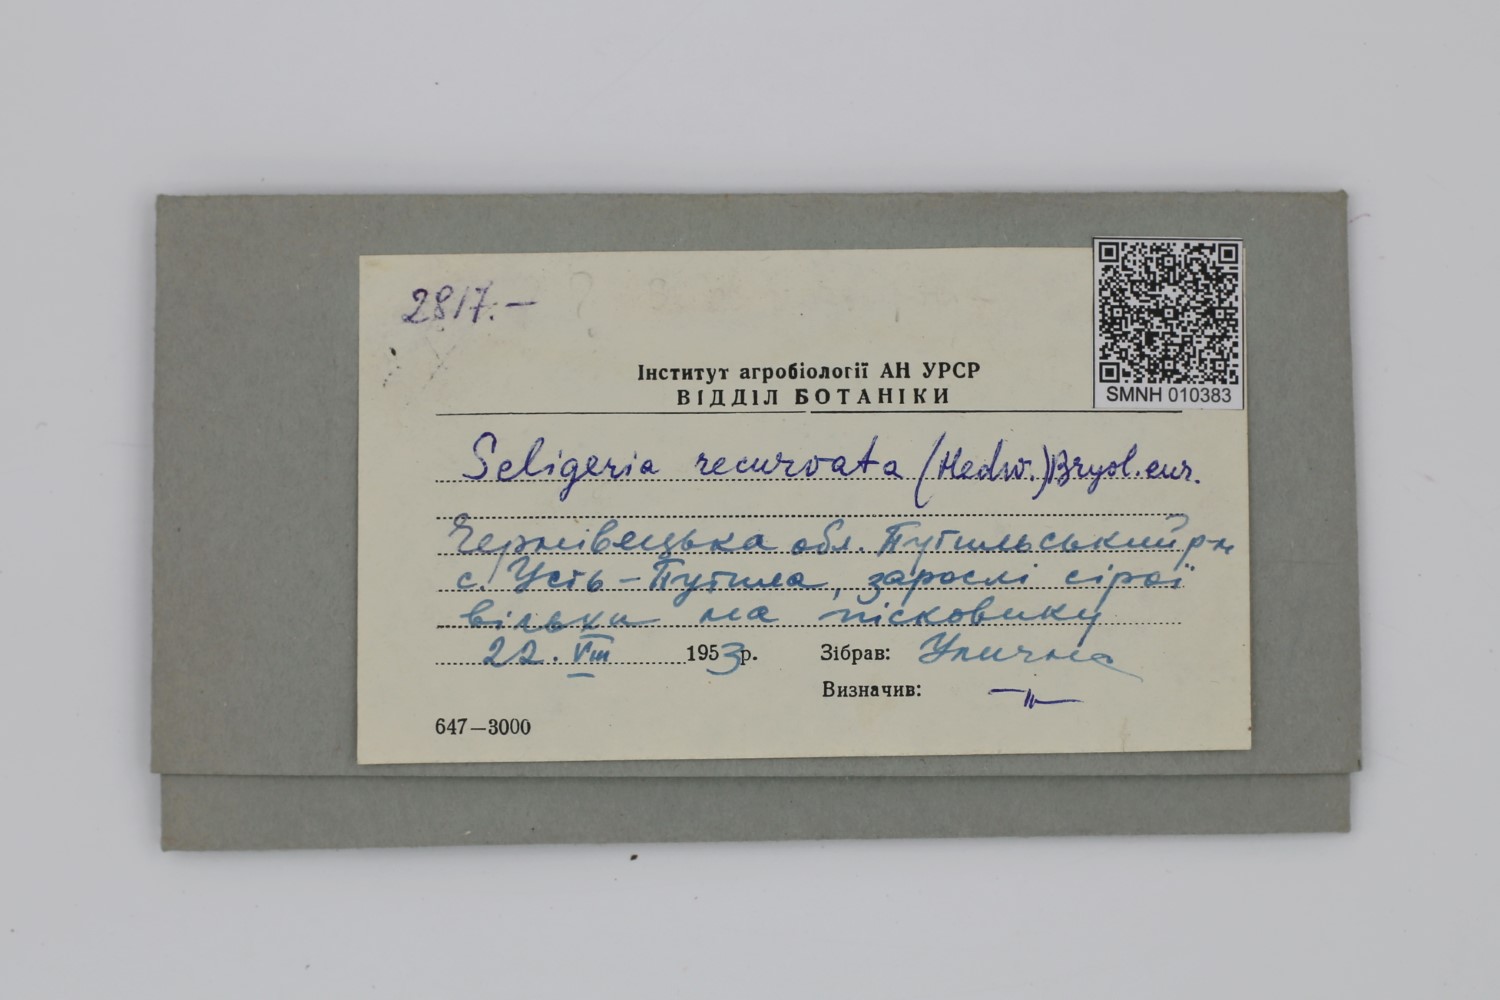 2817.—
SMNH 010383
Інститут агробіології АН УРСР
ВІДДІЛ БОТАНІКИ
Seligeria recurvata (Hedw.) Bryol. eur.
Чернівецька обл. Путильський р-н
с. Усть-Путила, зарослі сірої
вільхи на пісковику
22. VIII 1953 р. Зібрав: Улична
Визначив: —"—
647—3000